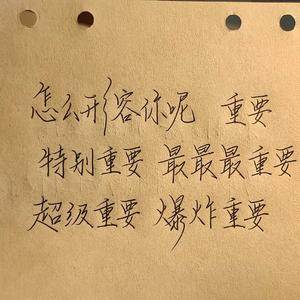 怎么形容你呢 重要
特别重要 最最最重要
超级重要 爆炸重要